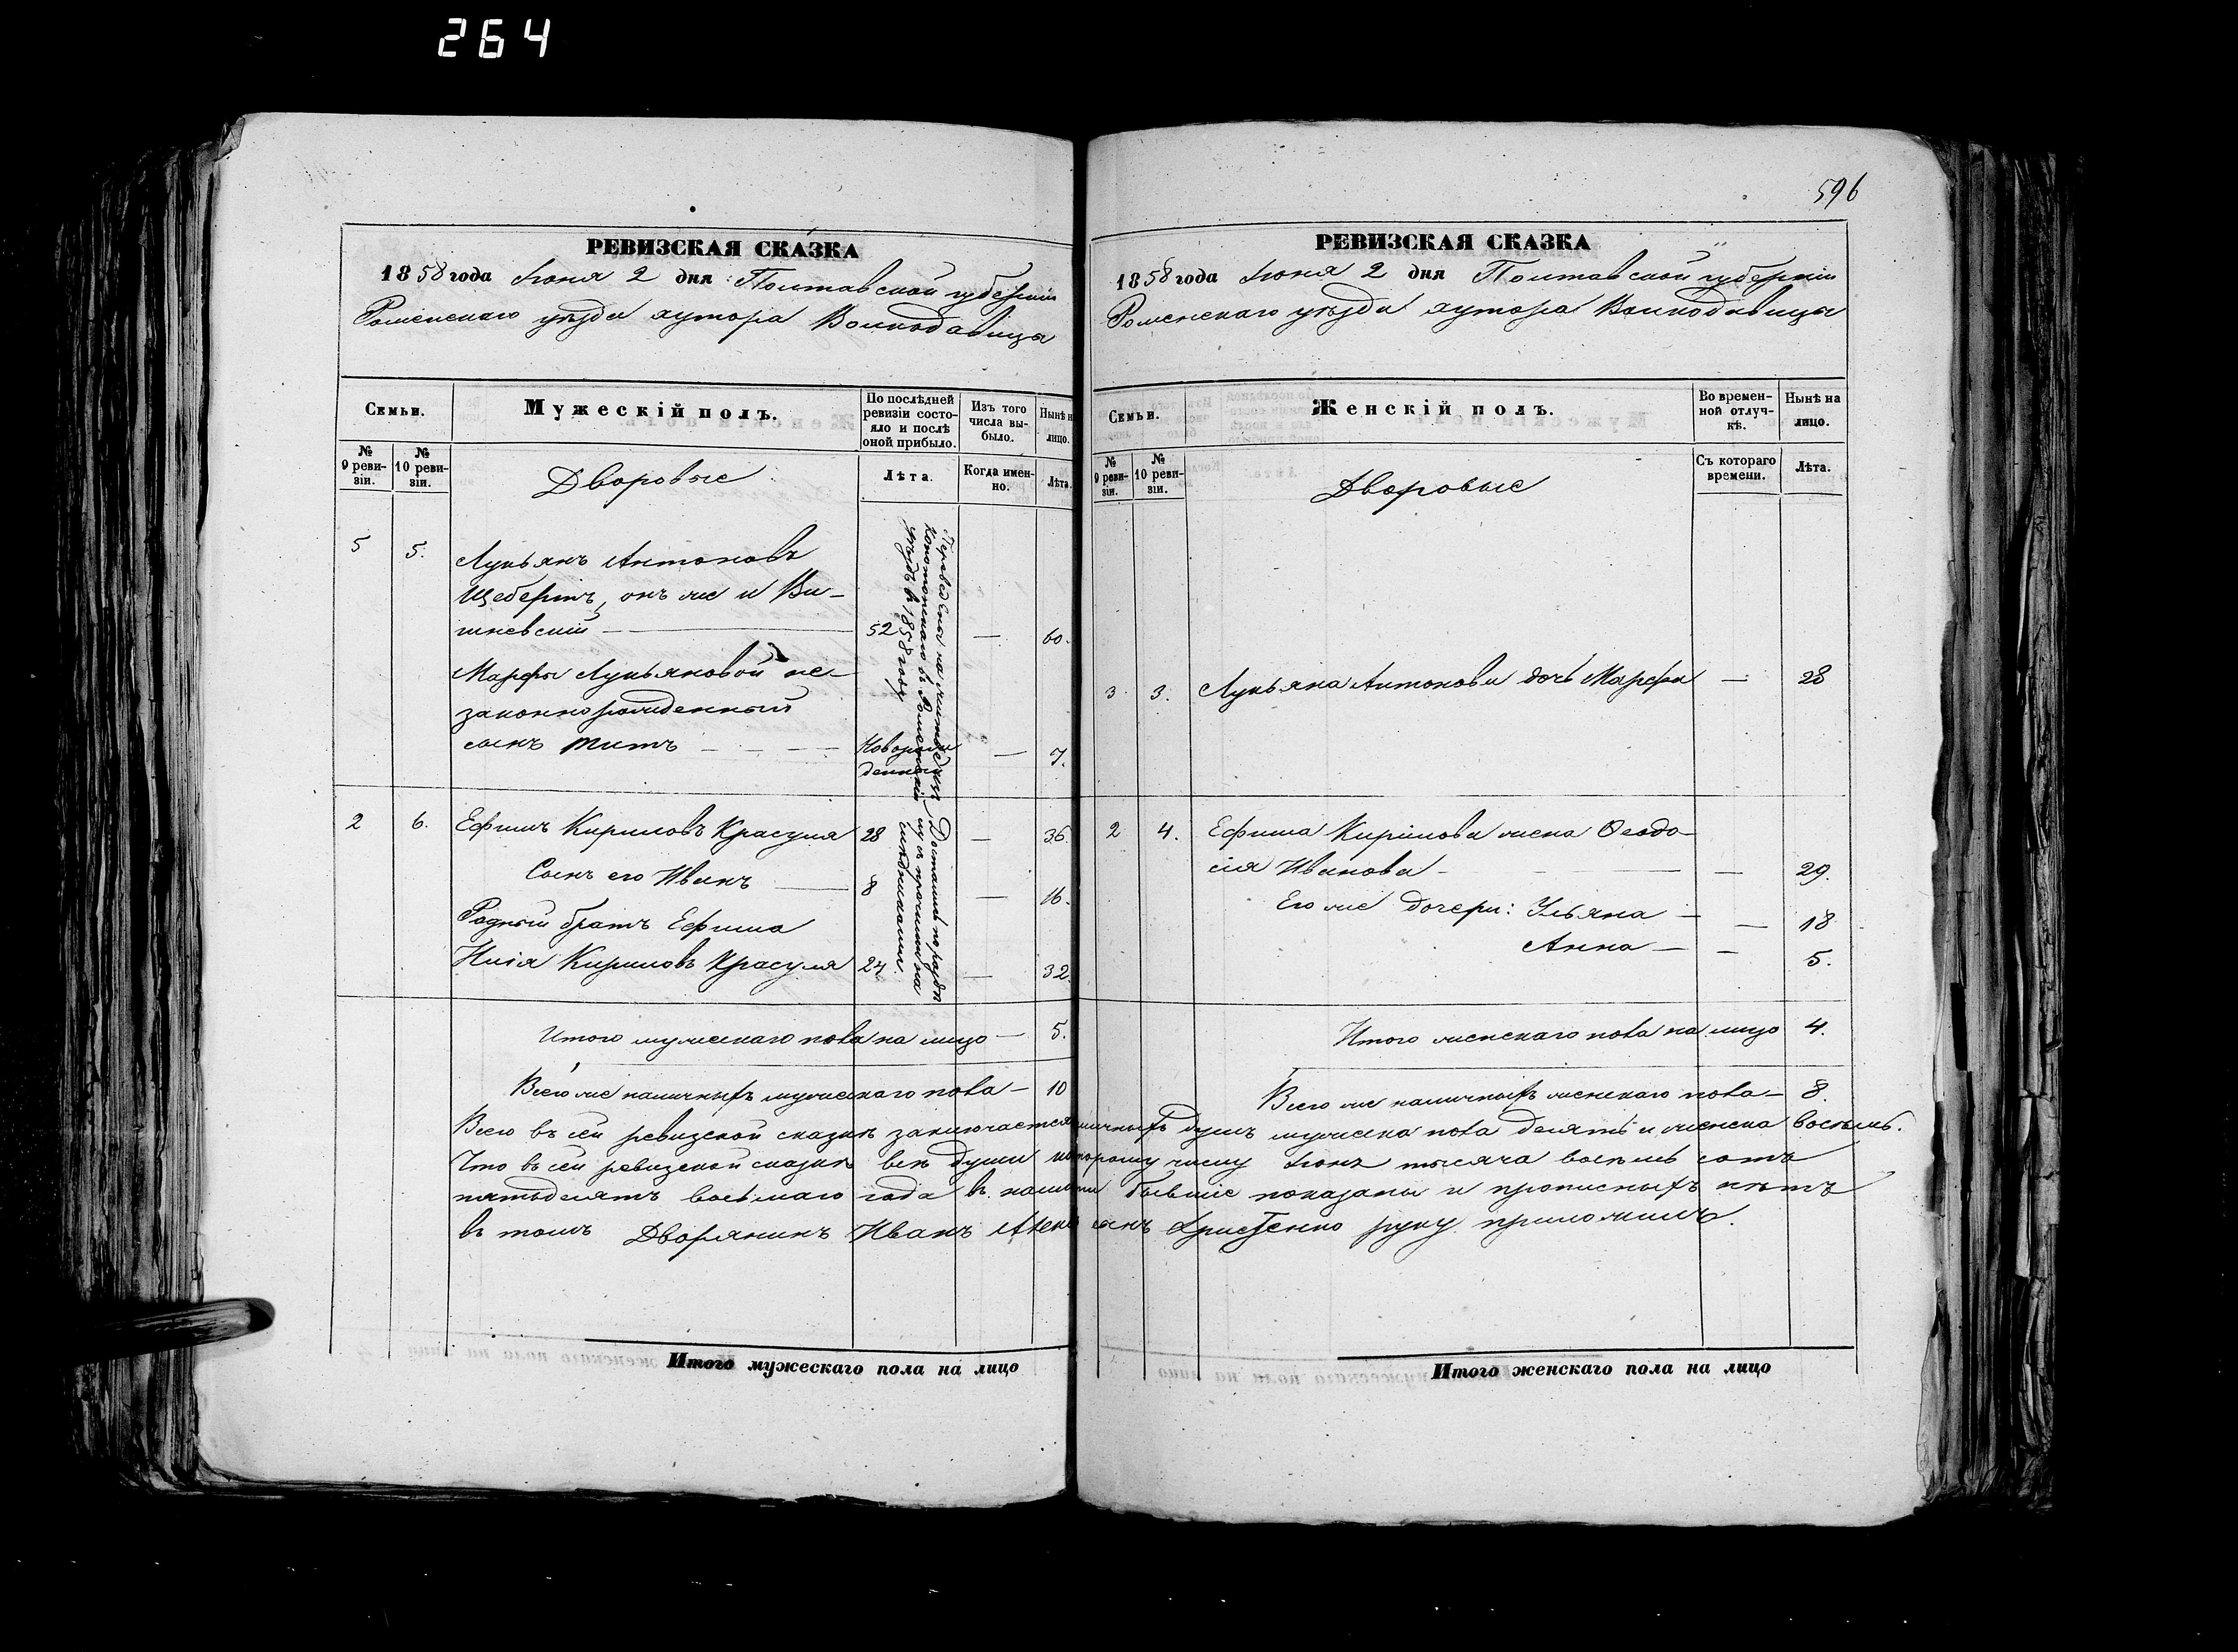 264
РЕВИЗСКАЯ СКАЗКА
1858 года Іюня 2 дня Полтавской губерніи
Роменскаго уѣзда хутора Волкодавицы
Семьи.
Мужескій полъ.
По послѣдней
ревизіи состо-
яло и послѣ
оной прибыло.
Изъ того
числа вы-
было.
Нынѣ н
лицо.
№
9 реви-
зіи.
№
10 реви-
зіи.
Дворовые
Лѣта.
Когда имен-
но.
Лѣта.
5 5. Лукьянъ Антоновъ
Щебертъ, онъ же и Ви-
шневскій 52 — 60.
Марфы Лукьяновой не-
законнорожденный
сынъ Титъ Новорож
денный — 7.
Переведены на жительство изъ
Конотопскаго въ Роменскій
уѣздъ въ 1858 году
2 6. Ефимъ Кириловъ Красуля 28 — 36.
Сынъ его Иванъ 8 — 16.
Родный братъ Ефима
Кириловъ Красуля 24 — 32.
Достались по раздѣ
лу съ прочими на
слѣдниками.
Итого мужескаго пола на лицо — 5.
Всего же наличныхъ мужескаго пола — 10
Итого мужескаго пола на лицо
596
РЕВИЗСКАЯ СКАЗКА
1858 года Іюня 2 дня Полтавской губерніи
Роменскаго уѣзда хутора Волкодавицы
Семьи.
Женскій полъ.
Во времен-
ной отлуч-
кѣ.
Нынѣ на
лицо.
№
9 реви-
зіи.
№
10 реви-
зіи.
Дворовые
Съ котораго
времени.
Лѣта.
3. 3. Лукьяна Антонова дочь Марфа — 28
2 4. Ефима Кирилова жена Ѳеодо-
сія Иванова — 29.
Его же дочери: Ульяна — 18
Анна — 5.
Итого женскаго пола на лицо 4.
Всего же наличныхъ женскаго пола — 8.
Всего въ сей ревизской сказкѣ заключается наличныхъ душъ мужеска пола десять и женска восемь.
Что въ сей ревизской сказкѣ всѣ души второму числу Іюня тысяча восемь сотъ
пятьдесятъ восьмаго года въ бывшіе показаны и прописныхъ нѣтъ
въ томъ Дворянинъ Иванъ сынъ руку приложилъ.
Итого женскаго пола на лицо